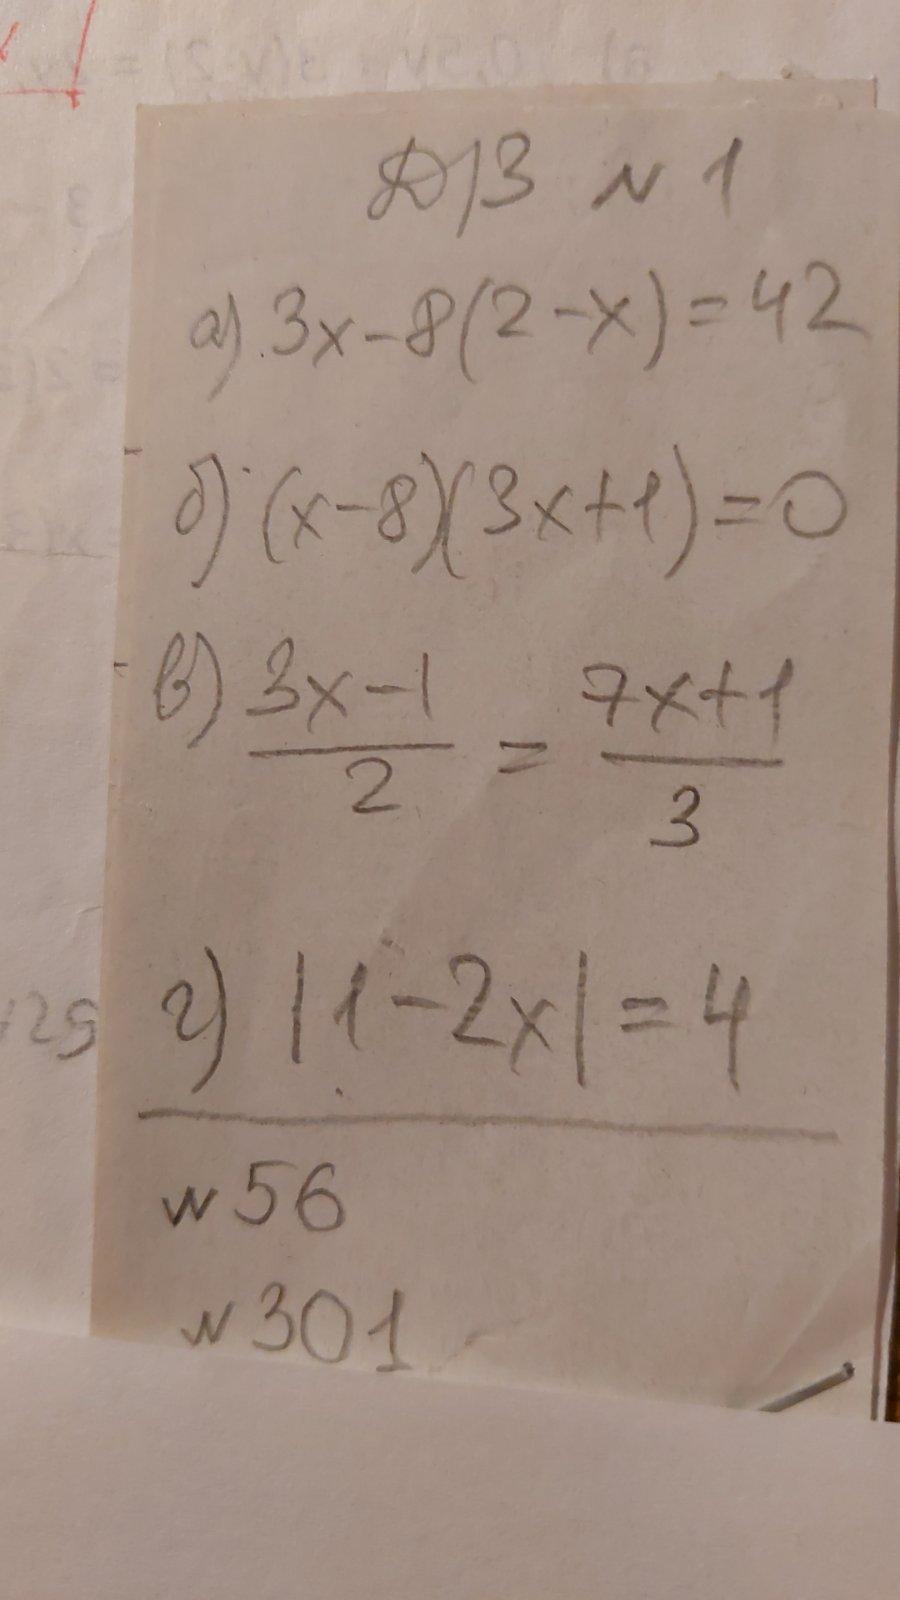 Д/З № 1
а) 3x-8(2-x)=42
б) (x-8)(3x+1)=0
в) \frac{3x-1}{2} = \frac{7x+1}{3}
г) |1-2x|=4
№ 56
№ 301